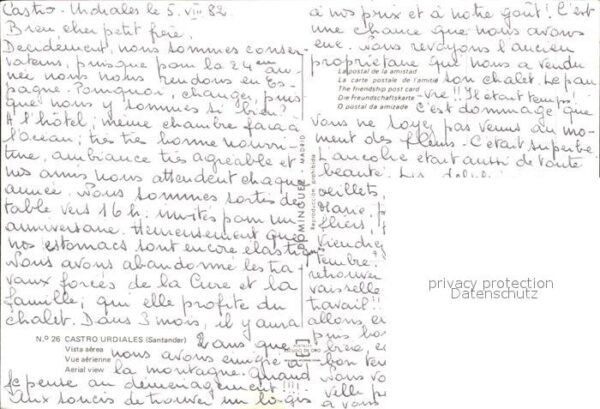 Castro-Urdiales le 5. VIII 82
Bien cher petit frère.
Décidément, nous sommes conser
vateurs, puisque pour la 24ème an
née nous nous rendons en Es
pagne. Pourquoi, changer, puis
que nous y sommes si bien?
A l'hôtel, même chambre face à
l'océan; très très bonne nourri-
ture, ambiance très agréable et
nos amis nous attendent chaque
année. Nous sommes sortis de
table vers 16h. invités pour un
anniversaire. Heureusement que
nos estomacs sont encore élastiques
Nous avons abandonné les tra
vaux forcés de la Cure et la
famille, qui elle profite du
chalet. Dans 3 mois, il y aura
N.º 26 CASTRO URDIALES (Santander)
Vista aérea
Vue aérienne
Aerial view
2 ans que
nous avons émigré à
la montagne. Quand
je pense au déménagement!!!!
Aux soucis de trouver un logis
DOMINGUEZ - MADRID
Reproducción prohibida
à nos prix et à notre goût! C'est
une chance que nous avons
eue. Nous revoyons l'ancien
propriétaire que nous a vendu
La postal de la amistad
La carte postale de l'amitié
The friendship post card
Die Freundschaftskarte
O postal da amizade
son chalet. Le pau
vre!! Il était temps!
C'est dommage que
vous ne soyez pas venus au mo
ment des fleurs. C'était superbe
L'ancolie était aussi de toute
beauté.
oeillets
fliers,
Viendrez
tembre?
retrouver
vaisselle
travail!!
allons,
plus
bon
vous
à vous
privacy protection
Datenschutz